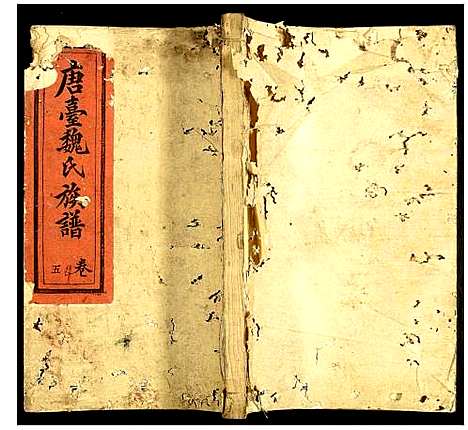 唐臺魏氏族譜
卷
五